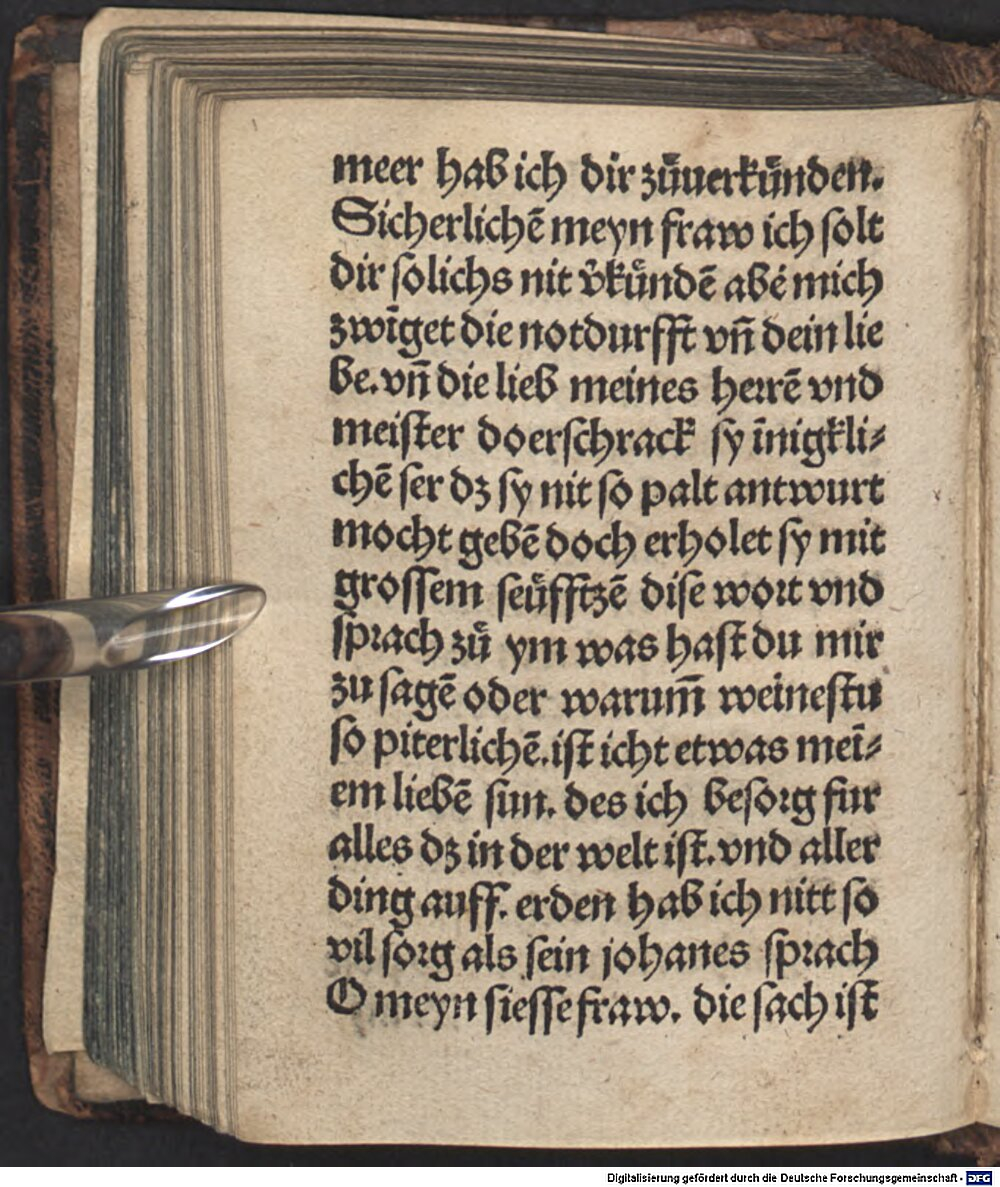 meer hab ich dir zůuerkünden.
Sicherlichē meyn fraw ich solt
dir solichs nit v̓kündē abe̓ mich
zwīget die notdurfft vn̄ dein lie
be. vn̄ die lieb meines herrē vnd
meister do erschrack sy īnigkli⸗
chē ser dz sy nit so palt antwurt
mocht gebē doch erholet sy mit
grossem seüfftzē dise wort vnd
sprach zů ym was hast du mir
zu sagē oder warum̄ weinestu
so piterlichē. ist icht etwas meī⸗
em liebē sun. des ich besorg fur
alles dz in der welt ist. vnd aller
ding auff. erden hab ich nitt so
vil sorg als sein johanes sprach
O meyn siesse fraw. die sach ist
Digitalisierung gefördert durch die Deutsche Forschungsgemeinschaft - DFG